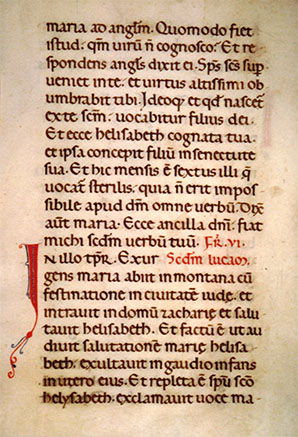 maria ad anglm̄. Quomodo fiet
istud. qm̄ uirū n̄ cognosco. Et re
spondens angls̄ dixit ei. Sps̄ scs̄ sup
ueniet in te. et uirtus altissimi ob
umbrabit tibi. Ideoq; et qd̄ nascet̄
ex te scm̄. uocabitur filius dei.
Et ecce helisabeth cognata tua.
et ipsa concepit filiū in senectute
sua. Et hic mensis ē sextus illi q̄
uocat̄ sterilis. quia n̄ erit impos
sibile apud dm̄ omne uerbū. Dx̄
aūt maria. Ecce ancilla dn̄i. fiat
michi scdm̄ uerbū tuū. Fr̄. VI.
IN illo tp̄r. Exur Scdm̄ lucam.
gens maria abiit in montana cū
festinatione in ciuitatē iude. et
intrauit in domū zacharie et salu
tauit helisabeth. Et factū ē ut au
diuit salutationē marie helisa
beth. exultauit in gaudio infans
in utero eius. Et repleta ē spū sc̄o
helysabeth. exclamauit uoce ma